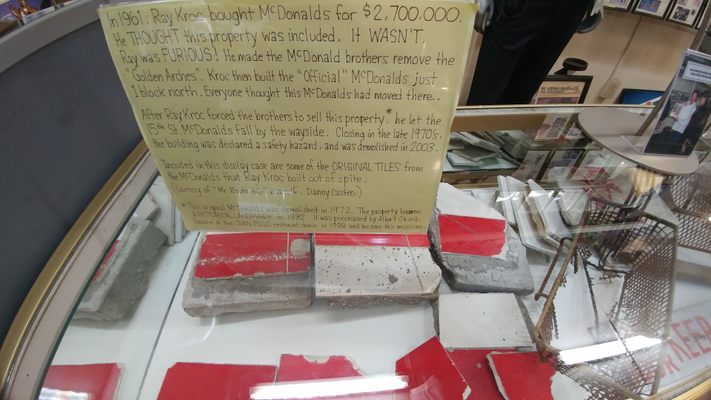 In 1961, Ray Kroc bought McDonalds for $2,700,000.
He THOUGHT this property was included. It WASN'T.
Ray was FURIOUS! He made the McDonald brothers remove the
"Golden Arches". Kroc then built the "Official" McDonalds just
1 block north. Everyone thought this McDonalds had moved there.
After Ray Kroc forced the brothers to sell this property,* he let the
15th St. McDonalds fall by the wayside. Closing in the late 1970's
the building was declared a safety hazard, and was demolished in 2003.
in this display case are some of the ORIGINAL TILES from
the McDonalds that Ray Kroc built out of spite.
(Courtesy of "Mr. Route 66" himself, Danny Castro.)
original McDonalds was demolished in 1972. The property became
a HISTORICAL LANDMARK in 1992. It was purchased by Albert Okura
of the JUAN POLLO restaurant chain in 1998 and the museum